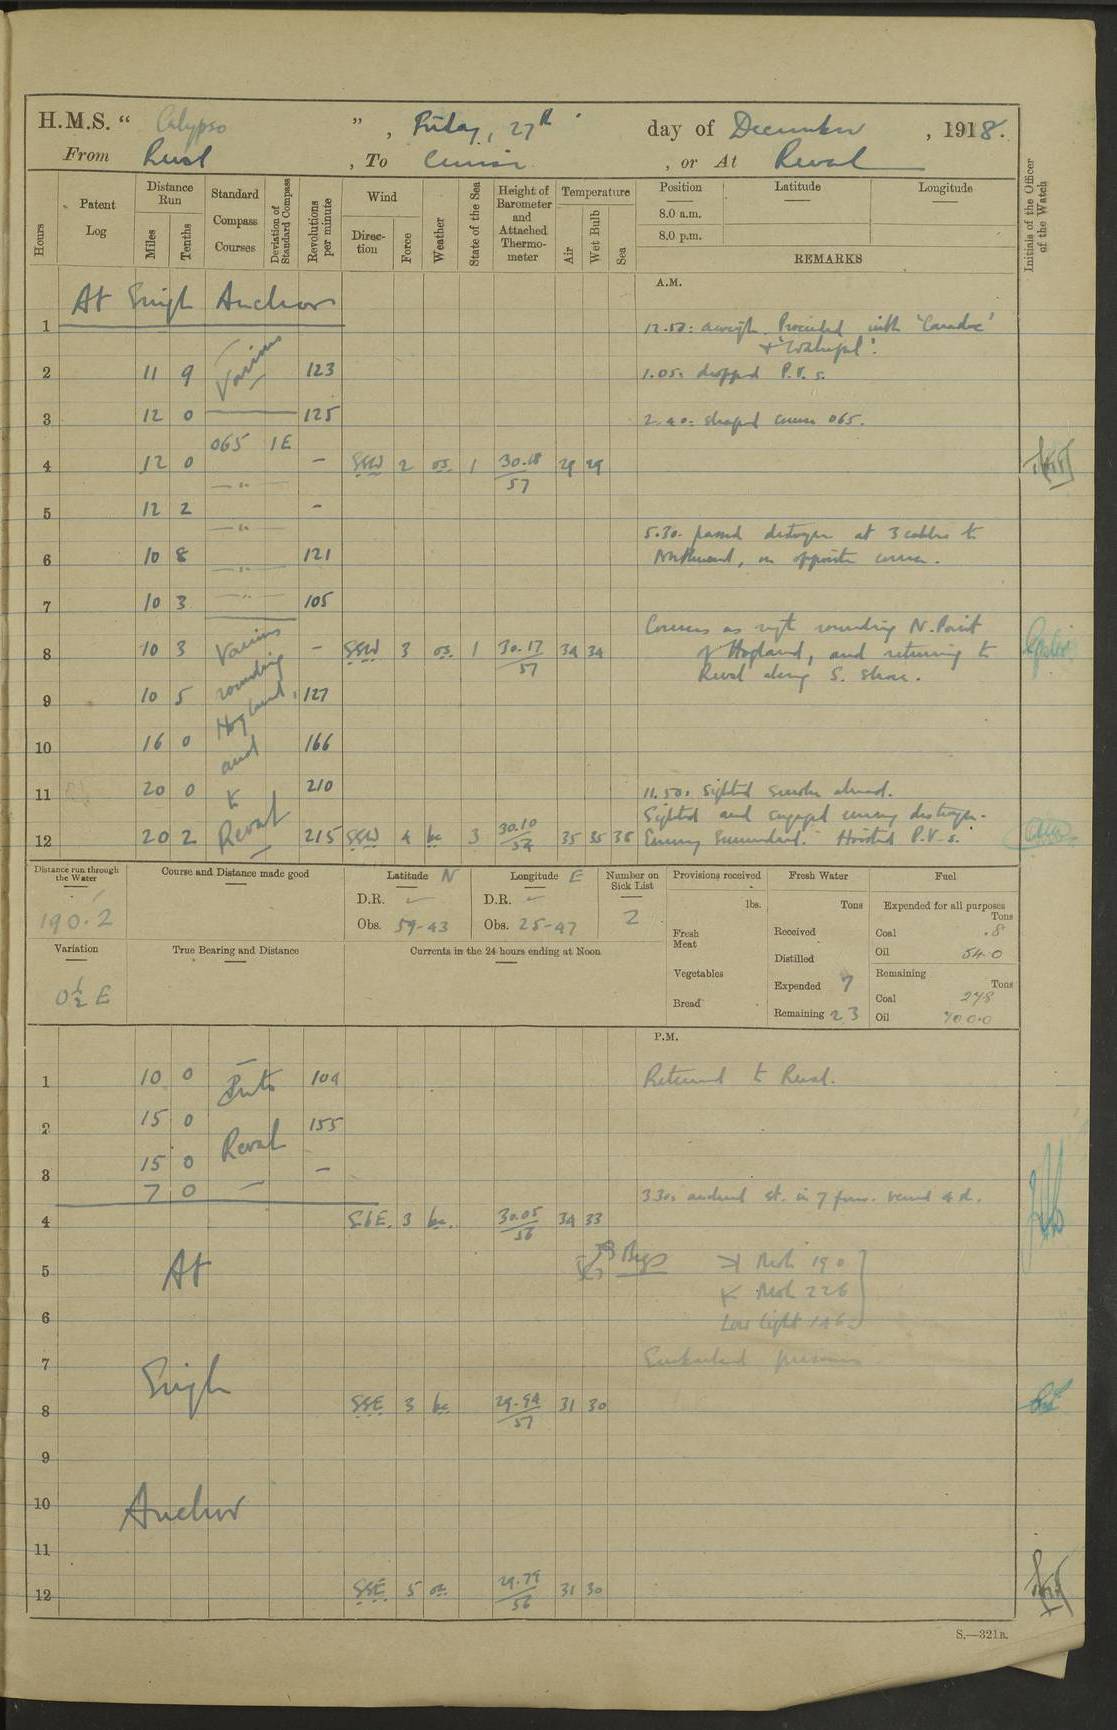 H.M.S. “ Calypso ” , Friday, 27th day of December , 1918.
From Reval , To Cruise , or At Reval
Hours
Patent Log
Distance Run
Miles
Tenths
Standard Compass Courses
Deviation of Standard Compass
Revolutions per minute
Wind
Direction
Force
Weather
State of the Sea
Height of Barometer and Attached Thermometer
Temperature
Air
Wet Bulb
Sea
Position Latitude Longitude
8.0 a.m.
8.0 p.m.
REMARKS
Initials of the Officer of the Watch
A.M.
At Single Anchor
1 12.50: aweigh. Proceeded with 'Caradoc'
+ 'Wakeful'.
2 11 9 Various 123 1.05: dropped P.V.s.
3 12 0 125 2.40: shaped course 065.
065 1E
4 12 0 - SSW 2 os. 1 30.18 57 29 29
— " —
5 12 2 -
— " —
5.30. passed destroyer at 3 cables to
6 10 8 121 Northward, on opposite course.
— " —
7 10 3 — " — 105
Courses as reqt rounding N. Point
8 10 3 Various - SSW 3 os. 1 30.17 57 34 34 of Hogland, and returning to
Reval along S. shore.
9 10 5 rounding 127
Hogland,
10 16 0 and 166
11 20 0 to 210 11.50: Sighted smoke ahead.
Sighted and engaged enemy destroyer.
12 20 2 Reval 215 SSW 4 bc 3 30.10 54 35 35 36 Enemy Surrendered. Hoisted P.V.s.
Distance run through the Water
190.2
Course and Distance made good
Latitude N
D.R.
Obs. 59-43
Longitude E
D.R.
Obs. 25-47
Number on Sick List
2
Provisions received
lbs.
Fresh Meat
Vegetables
Bread
Fresh Water
Tons
Received
Distilled
Expended 7
Remaining 23
Fuel
Expended for all purposes
Tons
Coal .8
Oil 54.0
Remaining
Tons
Coal 278
Oil 700.0
Variation
0½ E
True Bearing and Distance
Currents in the 24 hours ending at Noon
P.M.
1 10 0 Into 104 Returned to Reval.
2 15 0 Reval 155
3 15 0 -
7 0 3.30: anchored st. in 7 fms. veered 4 d.
4 SbE. 3 bc. 30.05 56 34 33
Brgs
5 At Mol 190
Mol 226
6 Low light 146
7 Single Embarked prisoners
8 SSE 3 bc 29.94 57 31 30
9
10 Anchor
11
12 SSE 5 29.79 56 31 30
S.—321B.